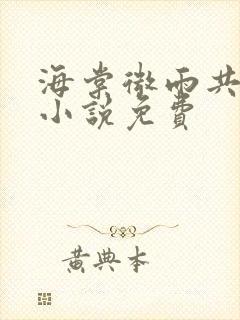 海棠微雨共
小説免費
黄典本